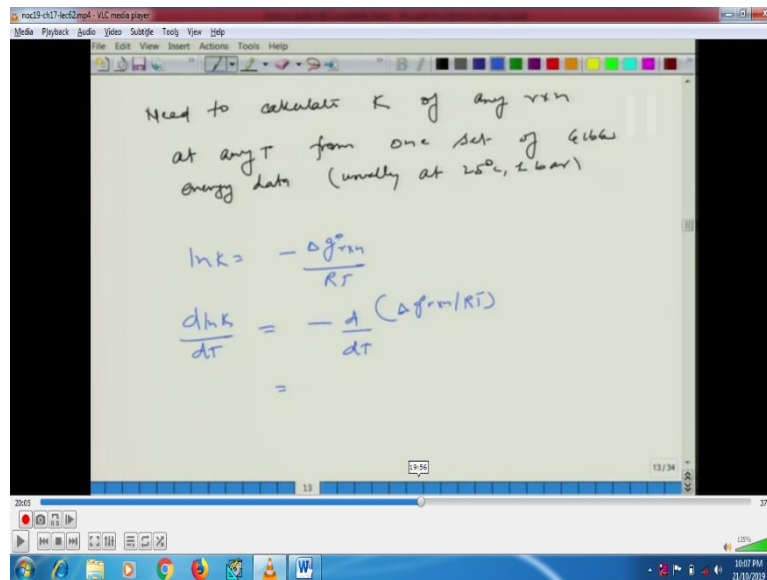 noc19-ch17-lec62.mp4 - VLC media player
Media Playback Audio Video Subtitle Tools View Help
File Edit View Insert Actions Tools Help
Need to calculate K of any rxn
at any T from one set of Gibbs
energy data (usually at 25°c, 1 bar)
lnK = - Δg°rxn / RT
dlnK / dT = - d / dT (Δg°rxn/RT)
=
19:56
13/34
13
20:05
37
125%
10:07 PM
21/10/2019